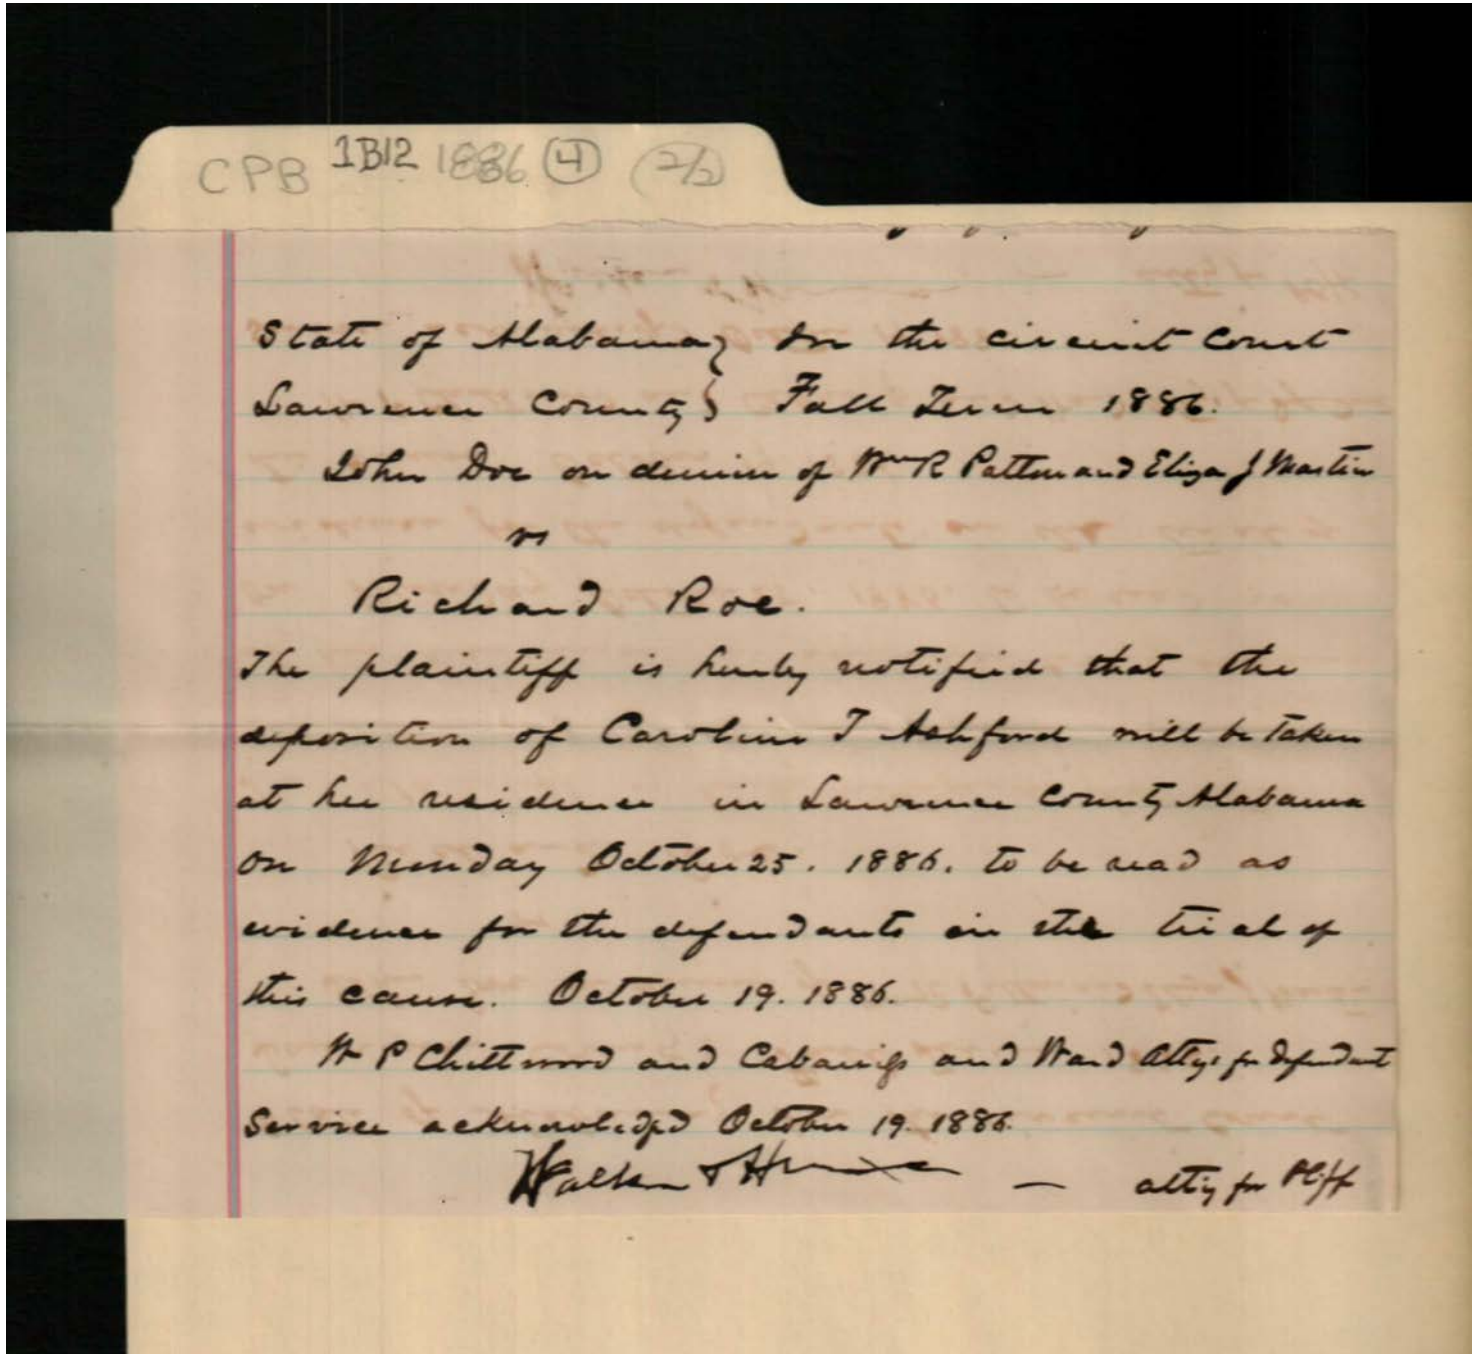 CPB 1B12 1886 4 (2/2)
State of Alabama } In the circuit Court
Lawrence County } Fall Term 1886.
John Doe on demise of Wm R Patton and Eliza J Martin
vs
Richard Roe.
The plaintiff is hereby notified that the
deposition of Caroline T Ashford will be taken
at her residence in Lawrence County Alabama
on Monday October 25. 1886. to be read as
evidence for the defendants in the trial of
this cause. October 19. 1886.
W P Chittwood and Cabaniss and Ward Attys for defendant
Service acknowledged October 19. 1886.
Walker & — atty for Plff